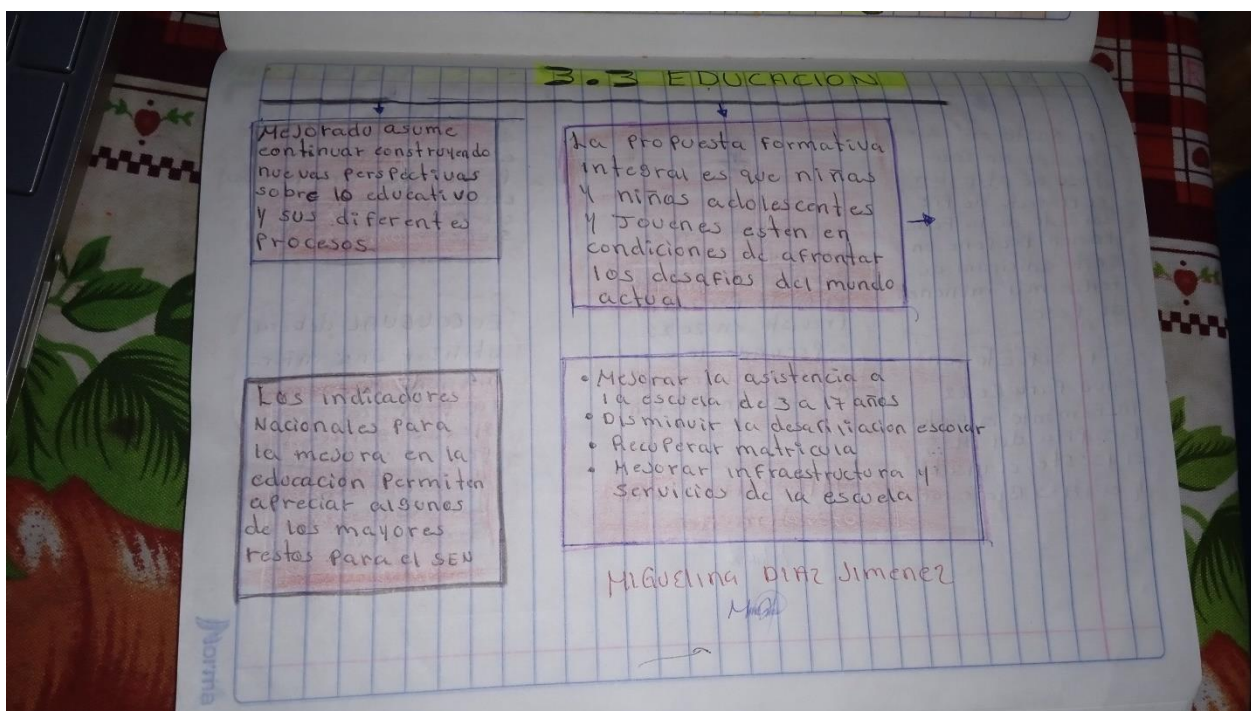 3.3 EDUCACION
Mejorado asume
continuar construyendo
nuevas perspectivas
sobre lo educativo
y sus diferentes
Procesos.
La Propuesta Formativa
integral es que niñas
y niños adolescentes
y Jovenes esten en
condiciones de afrontar
los desafios del mundo
actual.
Los indicadores
Nacionales Para
la mejora en la
educación Permiten
apreciar algunos
de los mayores
restos Para el SEN
• Mejorar la asistencia a
la escuela de 3 a 17 años
• Disminuir la desafiliacion escolar
• Recuperar matricula
• Mejorar infraestructura y
servicios de la escuela
MIGUELINA DIAZ JIMENEZ
Norma